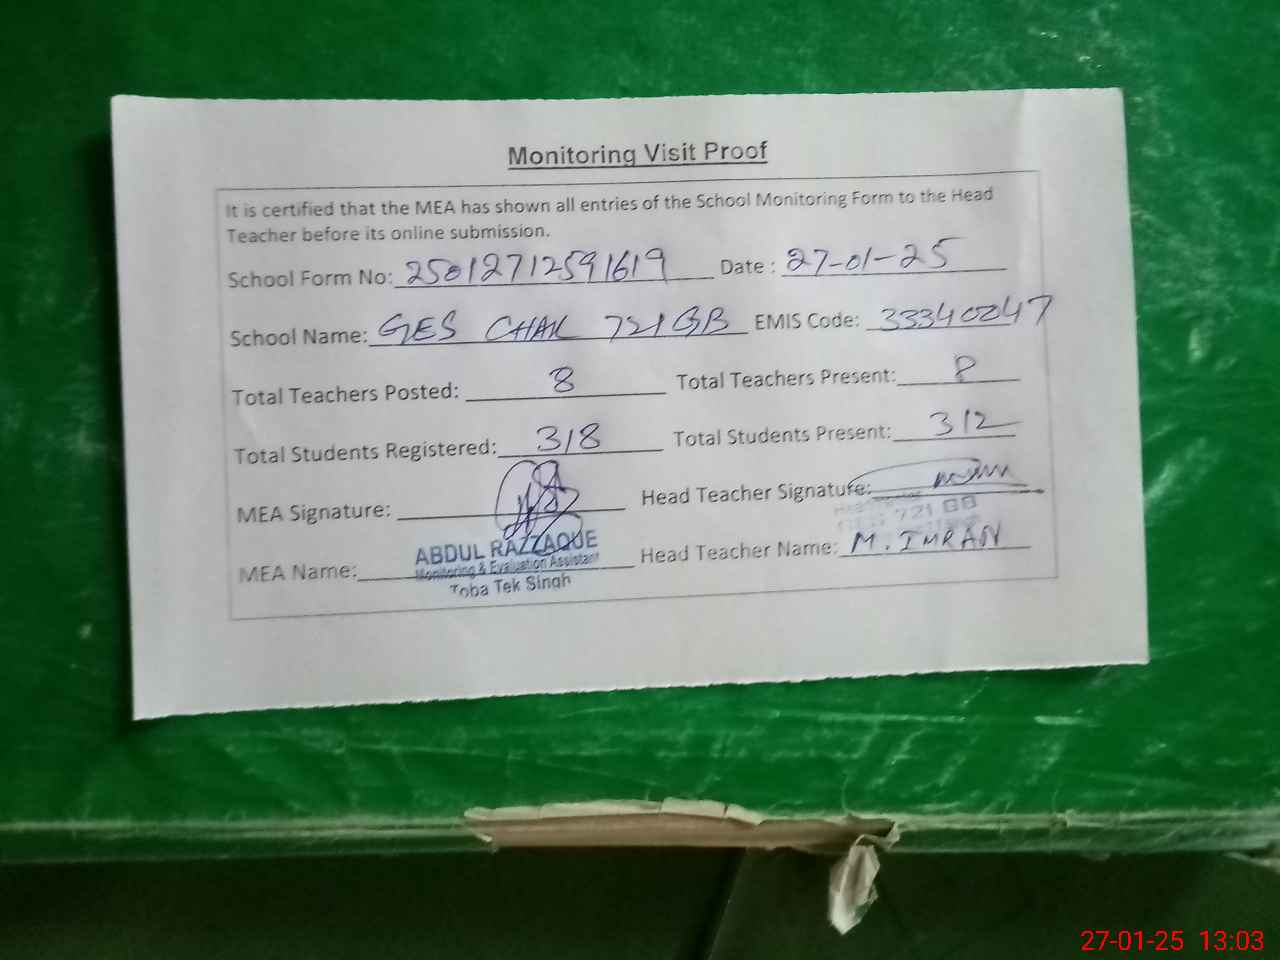 Monitoring Visit Proof
It is certified that the MEA has shown all entries of the School Monitoring Form to the Head
Teacher before its online submission.
School Form No: 25012712591619 Date : 27-01-25
School Name: GES CHAK 721 GB EMIS Code: 33340247
Total Teachers Posted: 8 Total Teachers Present: 8
Total Students Registered: 318 Total Students Present: 312
MEA Signature: Head Teacher Signature:
721 GB
MEA Name: ABDUL RAZZAQUE Head Teacher Name: M. IMRAN
Monitoring & Evaluation Assistant
Toba Tek Singh
27-01-25 13:03